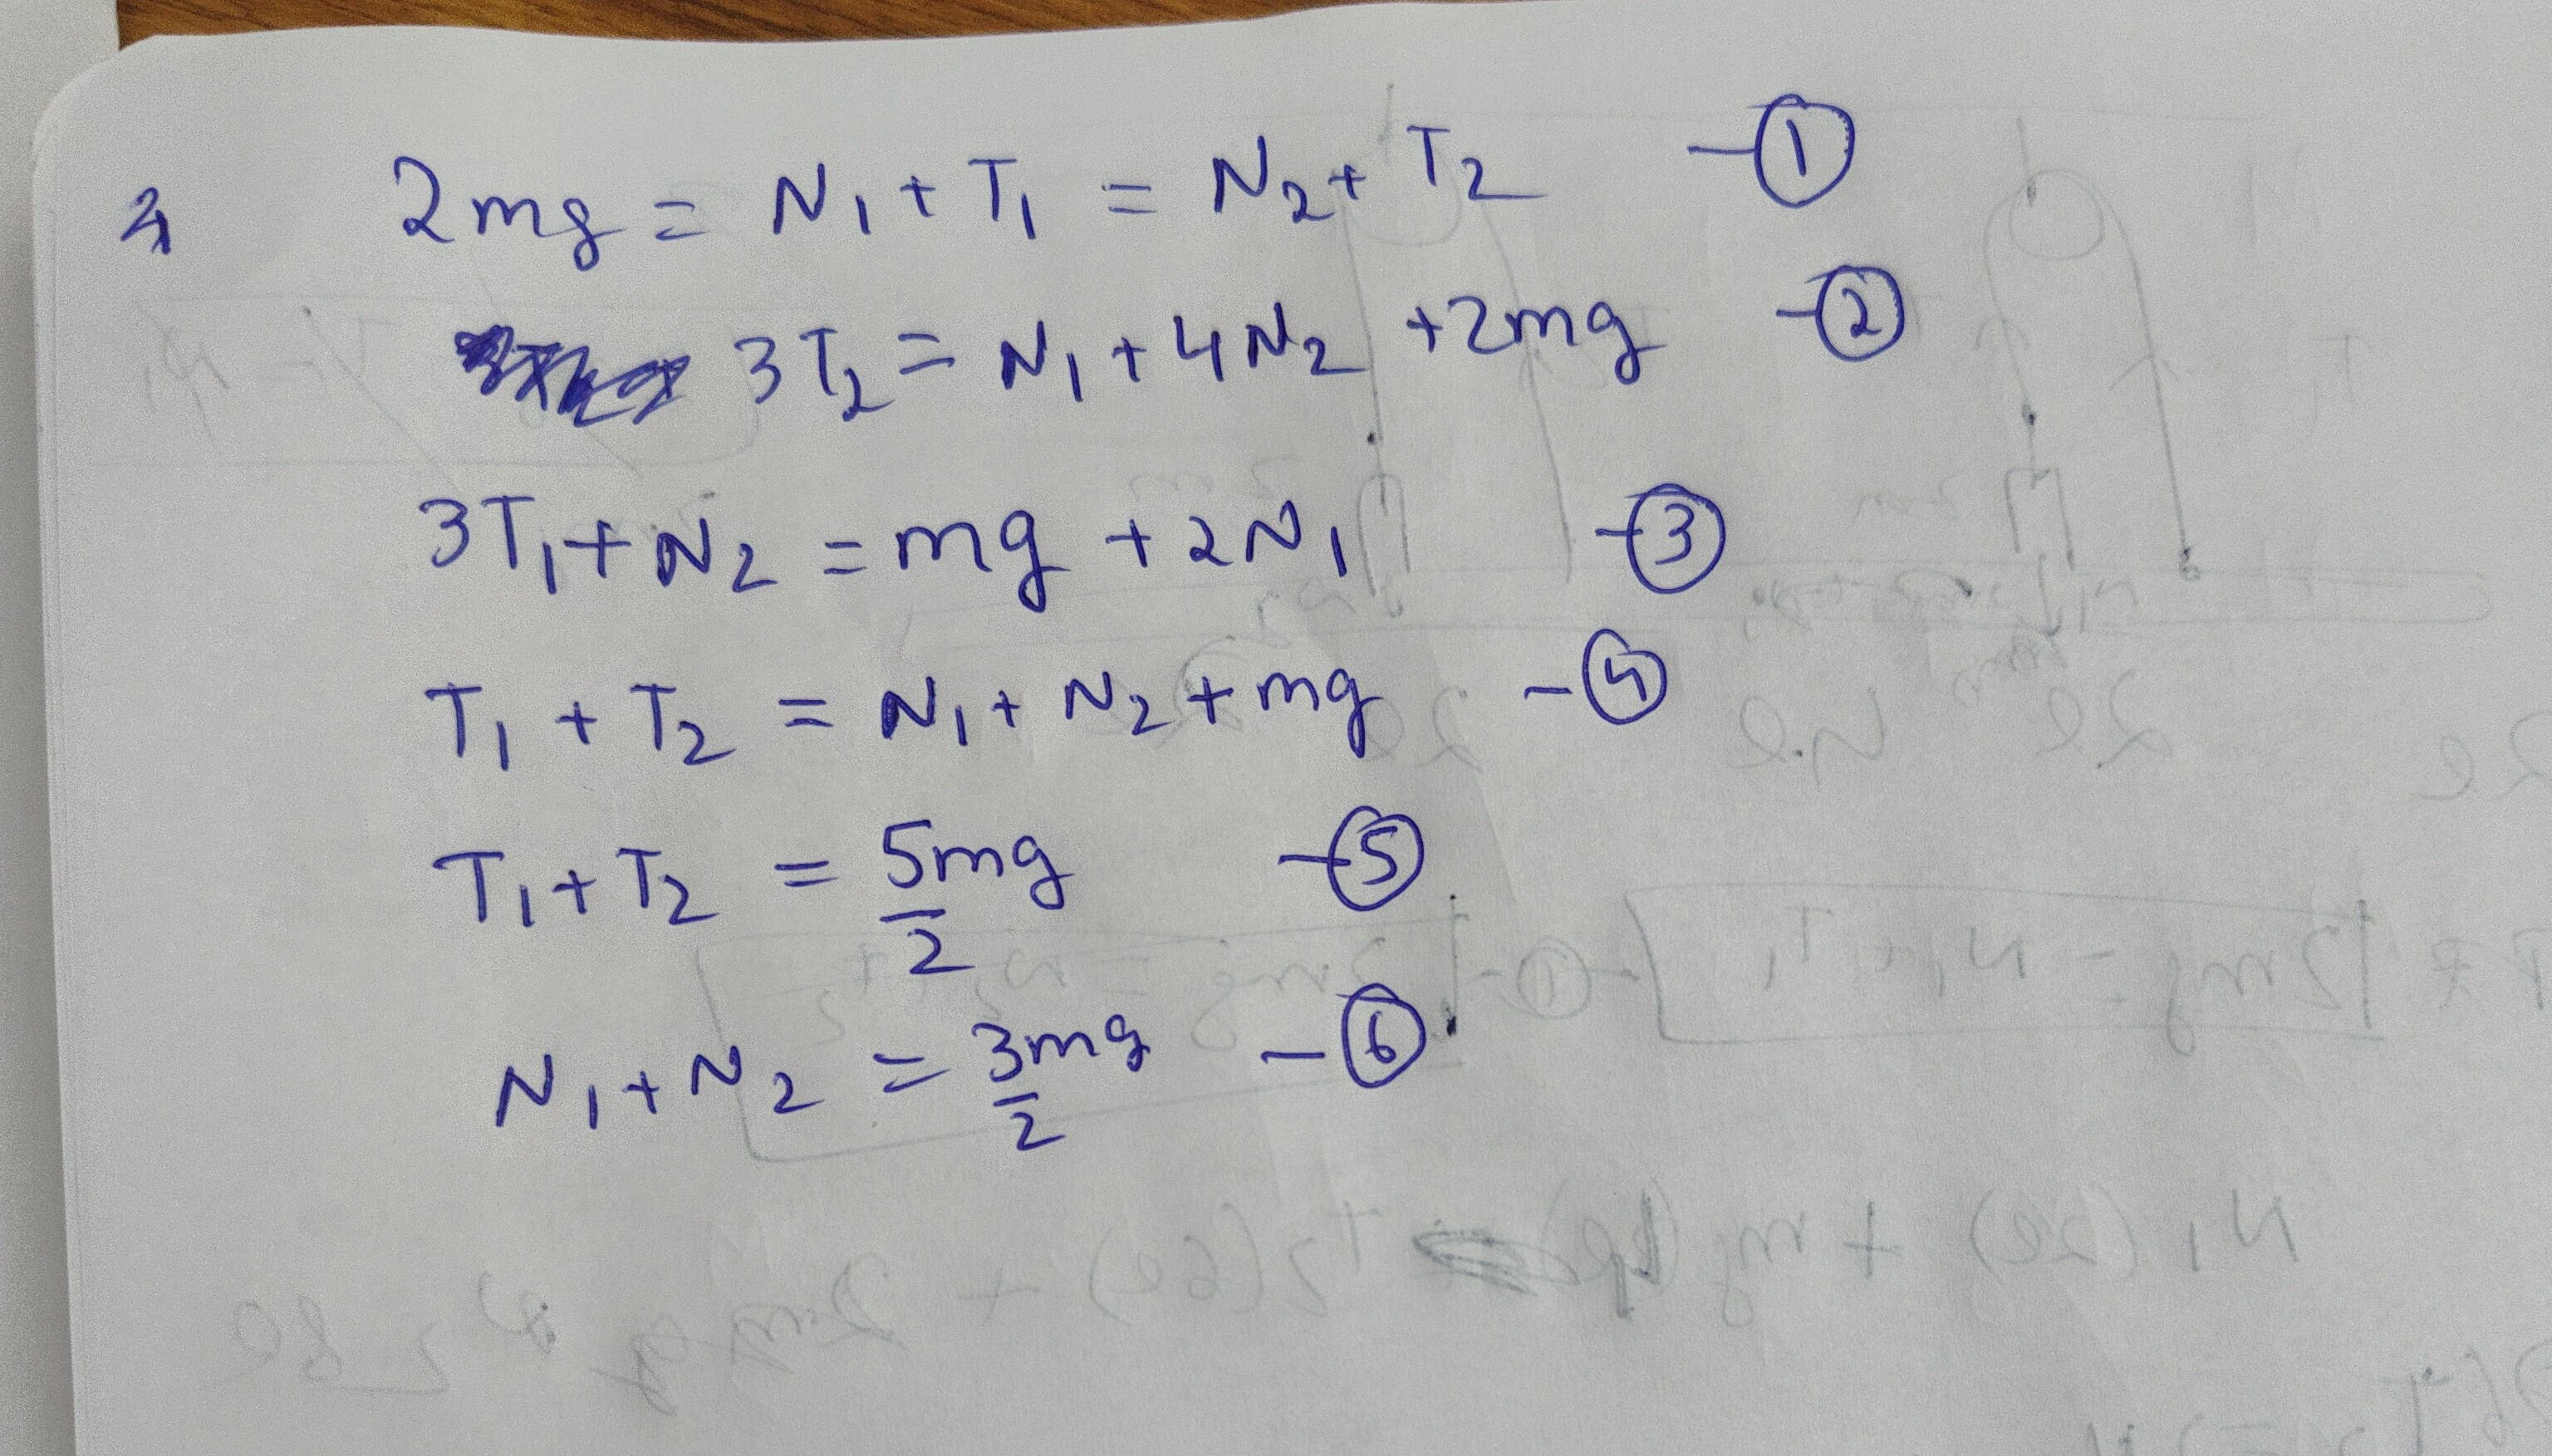 2mg = N₁ + T₁ = N₂ + T₂ -①
3T₂ = N₁ + 4N₂ + 2mg -②
3T₁ + N₂ = mg + 2N₁ -③
T₁ + T₂ = N₁ + N₂ + mg -④
T₁ + T₂ = 5mg/2 -⑤
N₁ + N₂ = 3mg/2 -⑥